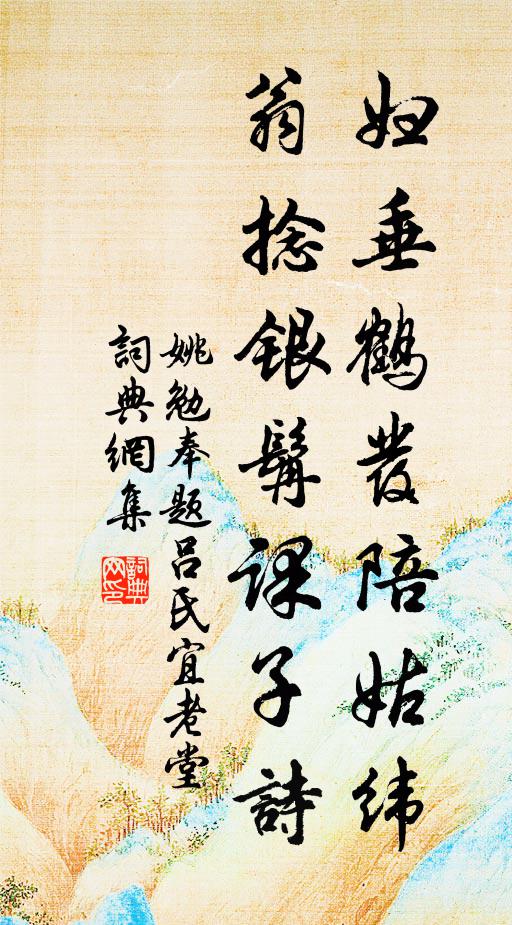 妇垂鶴发陪姑纬
翁捻銀髯課子詩
姚勉奉题吕氏宜老堂
詞典網集
詞典网印